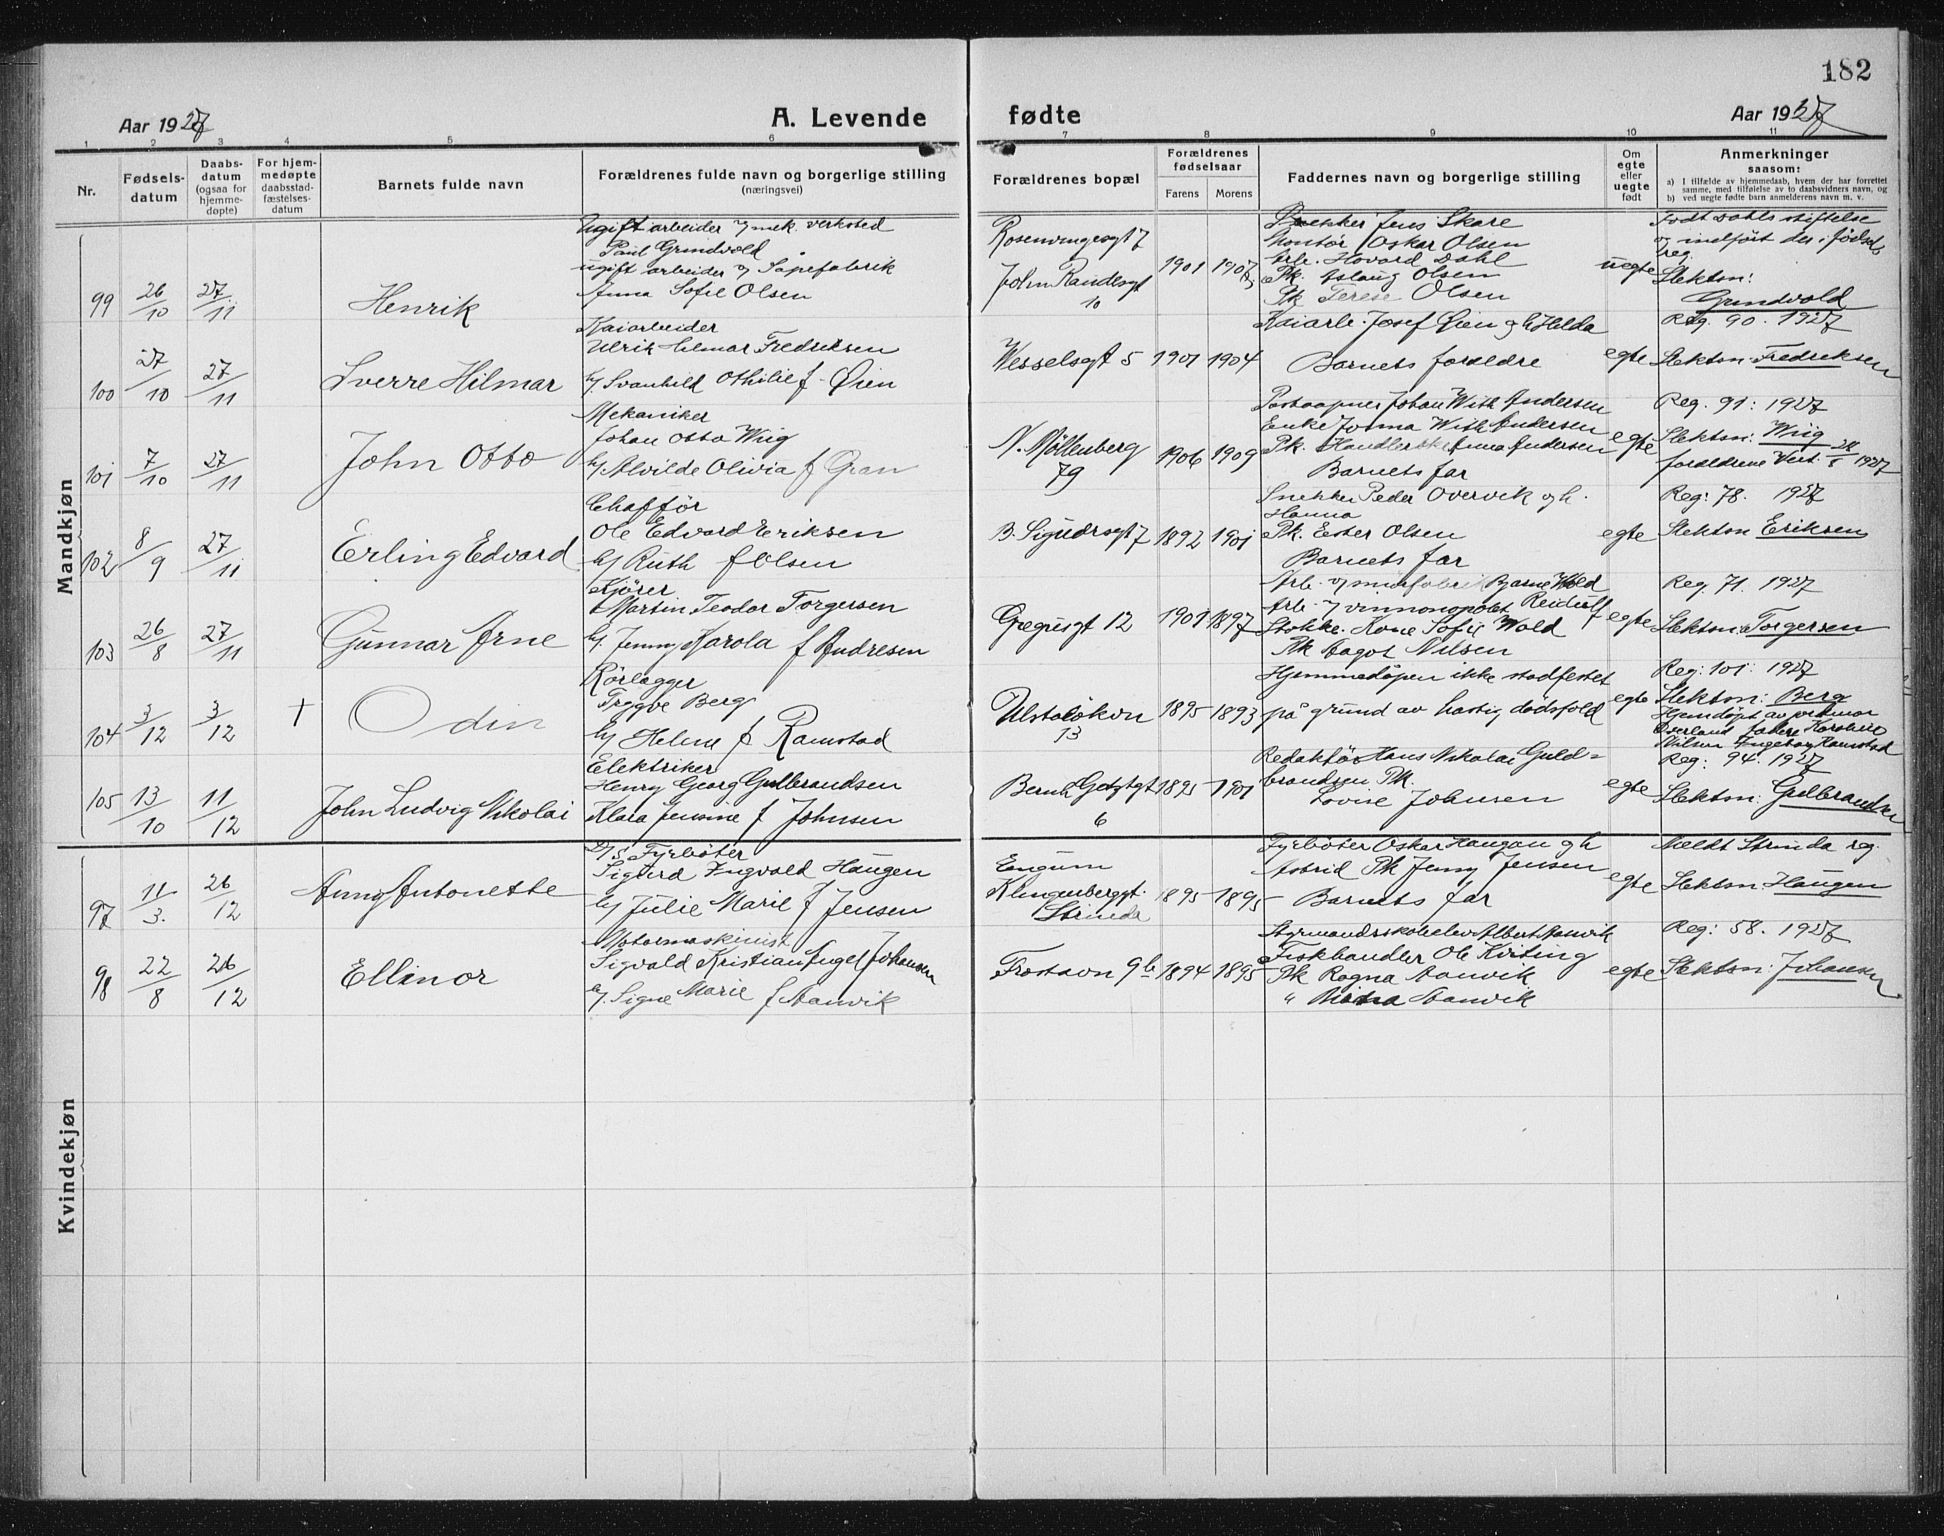 182
Aar 1927
A. Levende fødte
Aar 1927
1 2 3 4 5 6 7 8 9 10 11
Nr.
Fødselsdatum
Daabsdatum (ogsaa for hjemmedøpte)
For hjemmedøpte daabsstadfæstelsesdatum
Barnets fulde navn
Forældrenes fulde navn og borgerlige stilling (næringsvei)
Forældrenes bopæl
Forældrenes fødselsaar
Farens Morens
Faddernes navn og borgerlige stilling
Om egte eller uegte født
Anmerkninger saasom:
a) I tilfælde av hjemmedaab, hvem der har forrettet samme, med tilføielse av to daabsvidners navn, og
b) ved uegte fødte barn anmelderens navn m. v.
Mandkjøn
99 26/10 27/11 Henrik
Ugift arbeider v mek. verksted
Paul Grindvold
ugift arbeider v Sæpefabrik
Anna Sofie Olsen
Rosenvingesgt 7
John Randlsgt
10
1901 1907
Jens Skare
Montør Oskar Olsen
Arb. Hovard Dahl
Pk. Aslaug Olsen
Pk Terese Olsen
uegte
Født Dahls stiftelse
og indført der i fødsels
reg.
Slektsn:
Grindvold
100 27/10 27/11 Sverre Hilmar
Kaiarbeider
Ulrik Hilmar Fredriksen
h/ Svanhild Othilie f. Øien
Wesselsgt 5 1901 1904
Kaiarb. Josef Øien og h Helda
Barnets foreldre
egte
Reg. 90. 1927
Slektsn: Fredriksen
101 7/10 27/11 John Otto
Mekaniker
Johan Otto Wiig
h/ Alvilde Olivia f Gran
N. Møllenberg
79
1906 1909
Johan With Andersen
Enke Jonma With Andersen
Pk. Anna Andersen
Barnets far
egte
Reg. 91: 1927
Slektsn: Wiig
foreldrene 1927
102 8/9 27/11 Erling Edvard
Chaffør
Ole Edvard Eriksen
h/ Ruth f Olsen
B. Sigurdsgt 7 1892 1901
Snekker Peder Overvik og h.
Hanna
Pk. Ester Olsen
Barnets far
egte
Reg: 78. 1927
Slektsn Eriksen
103 26/8 27/11 Gunnar Arne
Kjører
Martin Teodor Torgersen
h/ Jenny Karola f Andresen
Gregusgt 12 1901 1897
Arb. Bjarne Wold
Arb. v vinmonopolet Reidulf
Stokke. Kone Sofie Wold
Pk Aagot Nilsen
egte
Reg. 71. 1927
Slektsn: Torgersen
104 3/12 3/12 † Odin
Rørlægger
Trygve Berg
h/ Helene f Ramstad
Ulstaløkvn
13
1895 1893
Hjemmedøpen ikke stadfestet
på grund av hastig dødsfald
egte
Reg: 101: 1927
Slektsn: Berg
Hjemdøpt av
Overland Karoline
Nilsen Ingeborg Ramstad
105 13/10 11/12 John Ludvig Nikolai
Elektriker
Henry Georg Gulbrandsen
Klara Jensine f Johnsen
Bernh Getzgt
6
1895 1901
Redaktør Hans Nikolai Guld=
brandsen Pk.
Lovise Johnsen
egte
Reg: 94. 1927
Slektsn: Gulbrandsen
Kvindekjøn
97 11/3. 26/12 Anny Antonette
D/S Fyrbøter
Sigurd Ingvald Haugen
h/ Julie Marie f Jensen
Engum
Klingenberggt.
Strinda
1895 1895
Fyrbøter Oskar Haugan og h
Astrid Pk Jenny Jensen
Barnets far
egte
Meldt Strinda reg.
Slektsn: Haugen
98 22/8 26/12 Ellinor
Motormaskinist
Sigvald Kristian Johansen
h/. Signe Marie f Aanvik
Frostavn 9b 1894 1895
Styrmandsskoleelev Albert Aanvik
Fiskhandler Ole Kviting
Pk Ragna Aanvik
" Aanvik
egte
Reg: 58. 1927
Slektsn: Johansen